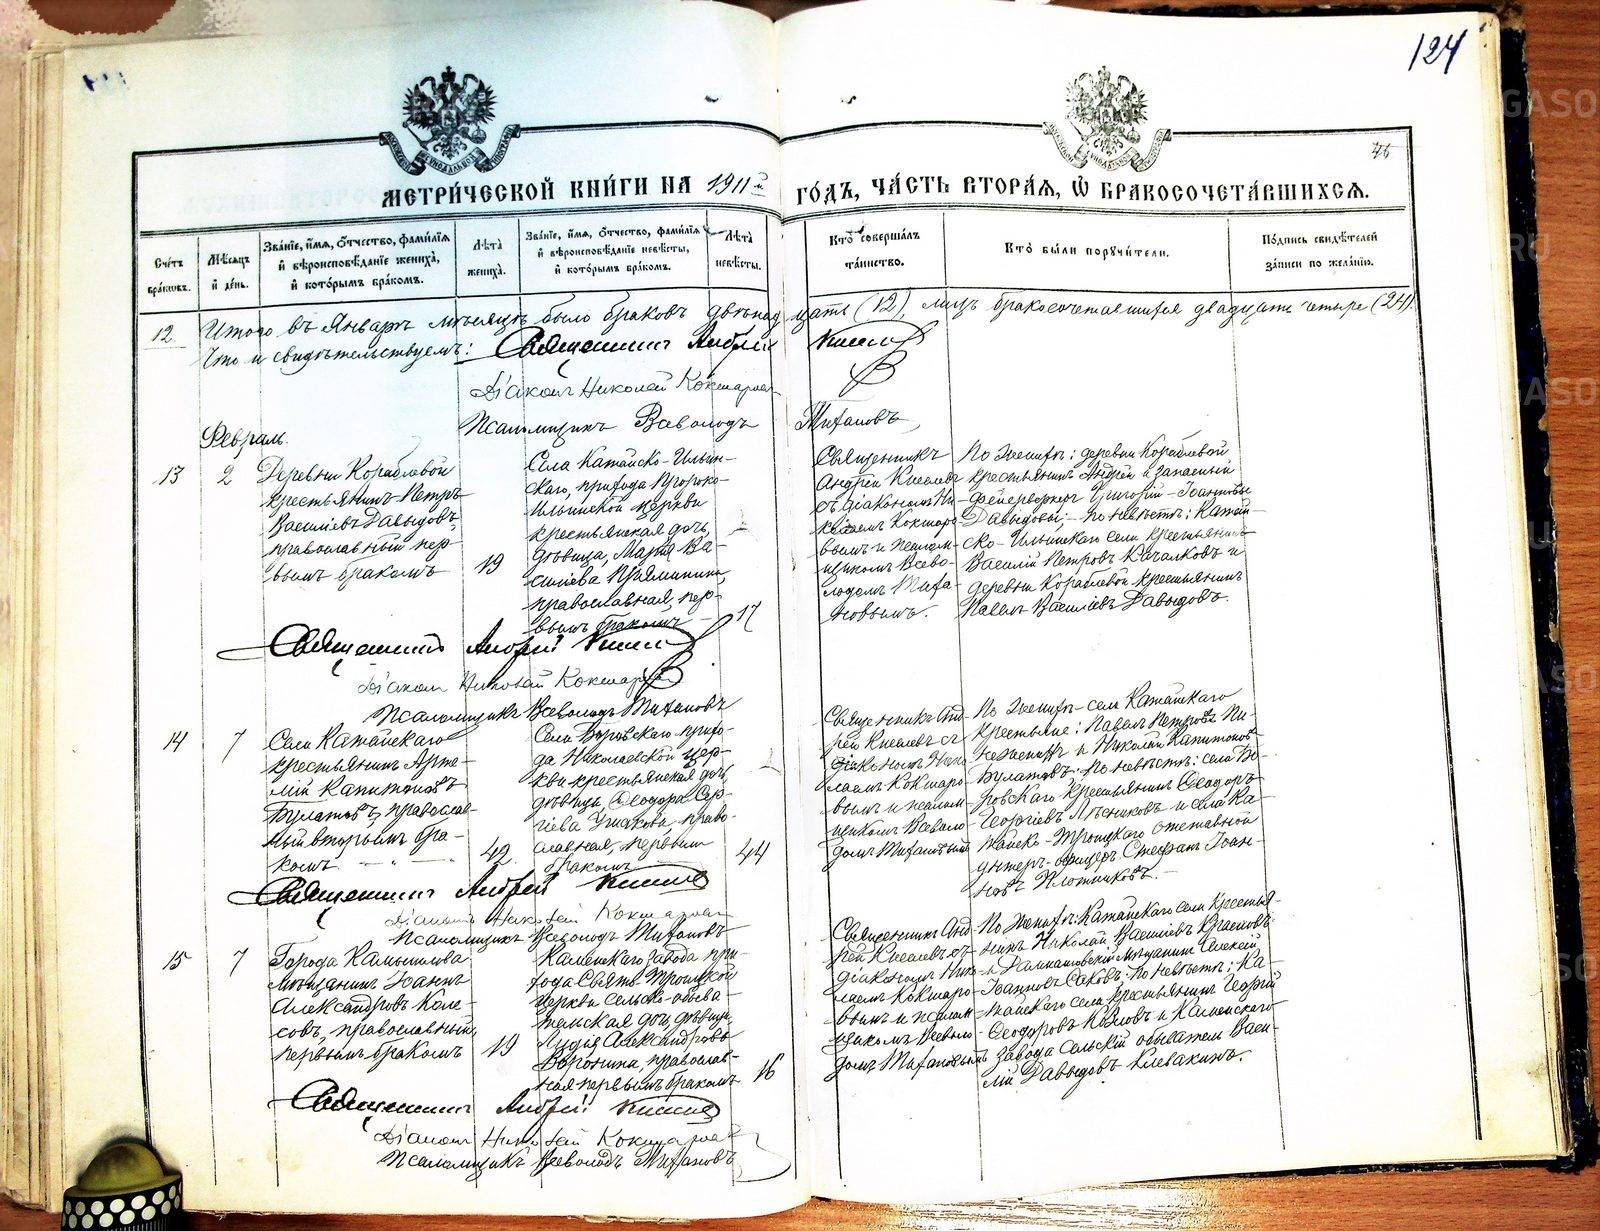 124
46
МЕТРИ́ЧЕСКОЙ КНИ́ГИ НА 1911й ГО́ДЪ, ЧА́СТЬ ВТОРА́Я, Ѡ БРАКОСОЧЕТА́ВШИХСЯ.
Сче́тъ бра́ковъ.
Мѣ́сяцъ и де́нь.
Зва́нїе, и́мя, о́тчество, фами́лїя
и вѣроисповѣ́данїе жениха̀,
и кото́рымъ бра́комъ.
Лѣ́та жениха̀.
Зва́нїе, и́мя, о́тчество, фами́лїя
и вѣроисповѣ́данїе невѣ́сты,
и кото́рымъ бра́комъ.
Лѣ́та невѣ́сты.
Кто̀ соверша́лъ та́инство.
Кто̀ бы́ли поручи́тели.
По́дпись свидѣ́телей
за́писи по жела́нїю.
12 Итого въ Январѣ мѣсяцѣ было браковъ двѣнадцать (12), лицъ бракосочетавшихся двадцать четыре (24).
Что и свидѣтельствуемъ: Священникъ Андрей Киселевъ
Діаконъ Николай Кокшаровъ
Псаломщикъ Всеволодъ Тихановъ
Февраль.
13
2
Деревни Кораблевой
крестьянинъ Петръ
Василіевъ Давыдовъ,
православный пер-
вымъ бракомъ
19
Села Катайско-Ильин-
скаго, прихода Пророко-
Ильинской церкви
крестьянская дочь,
дѣвица, Марія Ва-
силіева
православная, пер-
вымъ бракомъ
17
Священникъ
Андрей Киселевъ
съ діакономъ Ни-
колаемъ Кокшаро-
вымъ и псалом-
щикомъ Всево-
лодомъ Тиха-
новымъ.
По женихѣ: деревни Кораблевой
крестьянинъ Андрей и запасный
фейерверкеръ Григорій Іоанновы
Давыдовы; по невѣстѣ: Катай-
ско-Ильинскаго села крестьянинъ
Василій Петровъ Качалковъ и
деревни Кораблевой крестьянинъ
Павелъ Василіевъ Давыдовъ.
Священникъ Андрей Киселевъ
Діаконъ Николай Кокшаровъ
Псаломщикъ Всеволодъ Тихановъ
14
7
Села Катайскаго
крестьянинъ Арте-
мій Капитоновъ
Булатовъ, православ-
ный вторымъ бра-
комъ
42
Села Боровскаго прихо-
да Николаевской цер-
кви крестьянская дочь,
дѣвица, Ѳеодора Сер-
гіева Ушакова, право-
славная, первымъ
бракомъ
44
Священникъ Анд-
рей Киселевъ съ
діакономъ Нико-
лаемъ Кокшаро-
вымъ и псалом-
щикомъ Всеволо-
домъ Тихановымъ
По женихѣ села Катайскаго
крестьяне: Павелъ Петровъ
и Николай Капитоновъ
Булатовъ; по невѣстѣ: села Бо-
ровскаго крестьянинъ Ѳеодоръ
Георгіевъ Лѣсниковъ и села Ка-
тайско-Троицкаго отставной
унтеръ-офицеръ Стефанъ Іоан-
новъ Плотниковъ.
Священникъ Андрей Киселевъ
Діаконъ Николай Кокшаровъ
Псаломщикъ Всеволодъ Тихановъ
15
7
Города Камышлова
мѣщанинъ Іоаннъ
Александровъ Коле-
совъ, православный,
первымъ бракомъ
19
Каменскаго завода при-
хода Свято-Троицкой
церкви сельско-обыва-
тельская дочь, дѣвица
Лидія Александрова
Воронина, православ-
ная первымъ бракомъ
16
Священникъ Анд-
рей Киселевъ съ
діакономъ Нико-
лаемъ Кокшаро-
вымъ и псалом-
щикомъ Всеволо-
домъ Тихановымъ
По женихѣ: Катайскаго села крестья-
нинъ Николай Василіевъ
и Далматовскій мѣщанинъ Алексѣй
Іоанновъ Саковъ; по невѣстѣ: Ка-
тайскаго села крестьянинъ Георгій
Ѳеодоровъ Козловъ и Каменскаго
завода сельскій обыватель Васи-
лій Давыдовъ Клевакинъ.
Священникъ Андрей Киселевъ
Діаконъ Николай Кокшаровъ
Псаломщикъ Всеволодъ Тихановъ